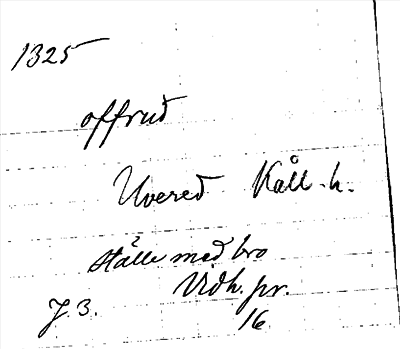 1325
offrud
Uvered Kåll. h.
ställe med bro
Vidh. pr.
J 3.
16